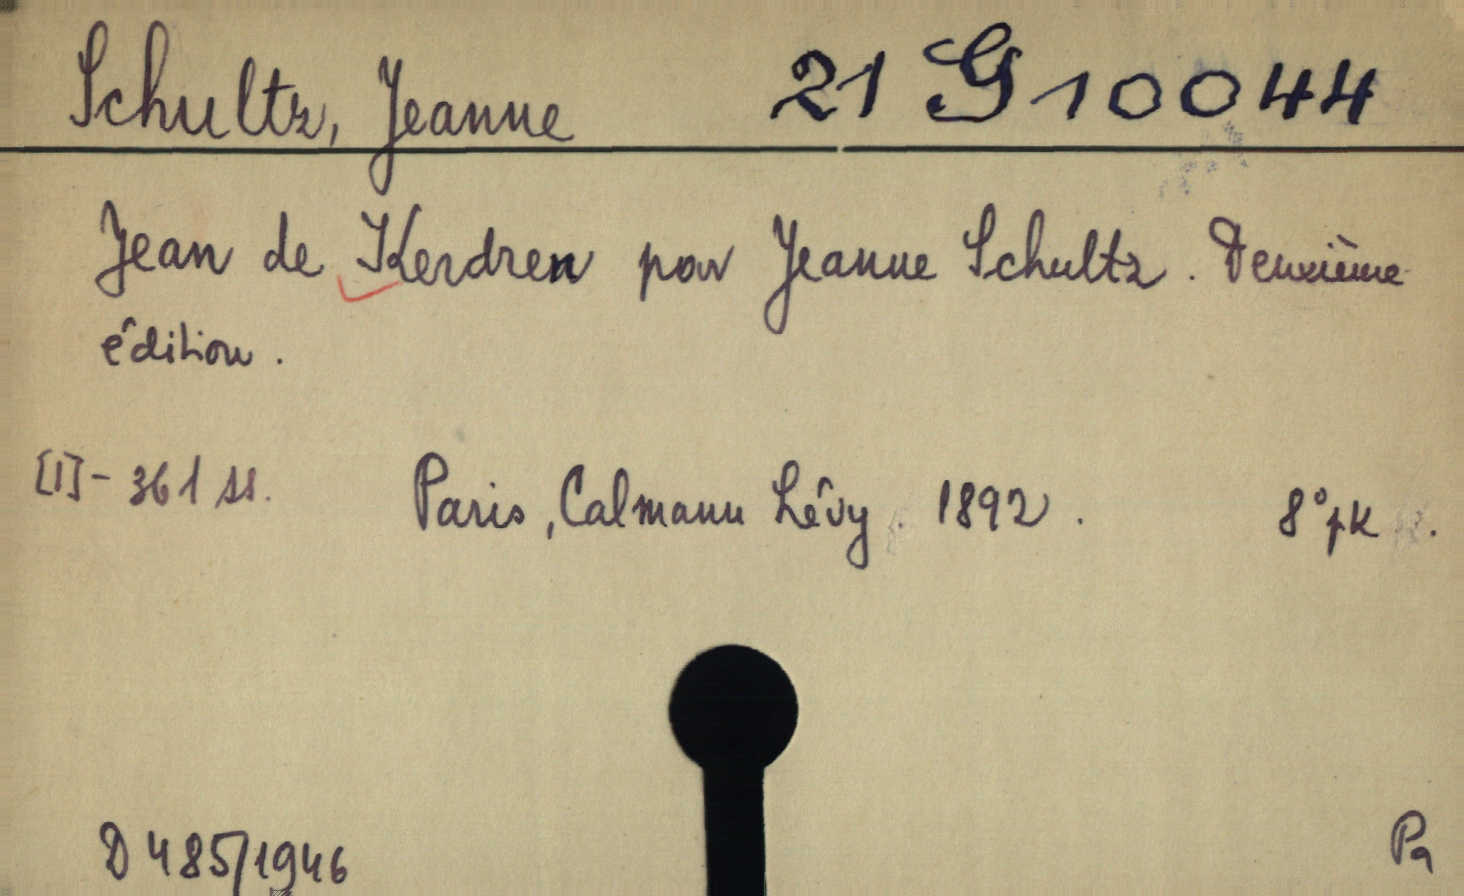 Schultz, Jeanne 21 G 10044
Jean de Kerdren par Jeanne Schultz. Deuxième
édition.
[1]-361 ss. Paris, Calmann Lévy. 1892. 8° pk.
D 485/1946 Pa